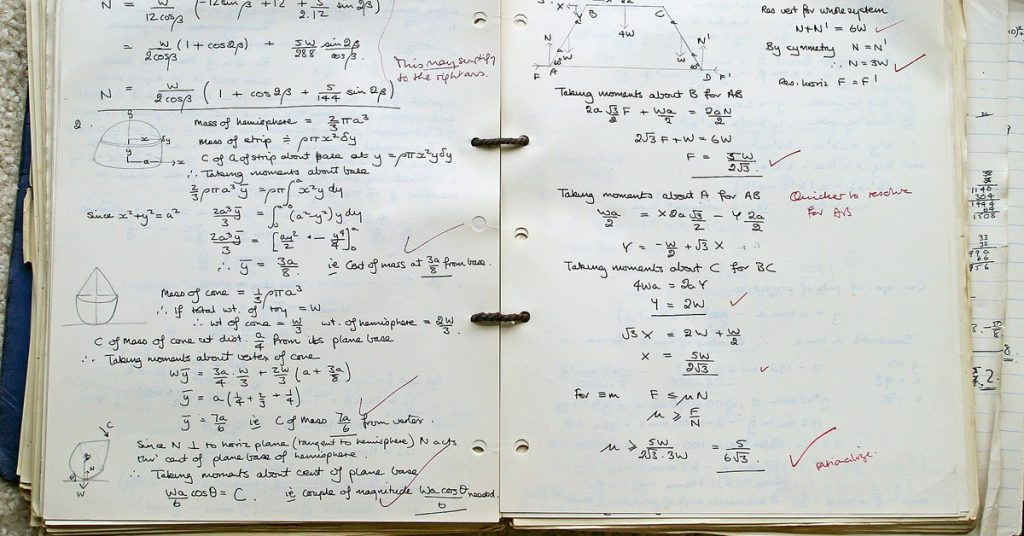 N = W/12cosβ (-12sinβ + 12 + 5/2.12 sin2β)
= W/2cosβ (1 + cos2β) + 5W/288 sin2β/cosβ
This may simplify
to the right ans.
N = W/2cosβ (1 + cos2β + 5/144 sin2β)
2.
Mass of hemisphere = 2/3 πa³
Mass of strip ≡ ρπx²δy
C of G of strip about base at y = ρπx²yδy
∴ Taking moments about base
2/3 ρπa³ȳ = ρπ∫ᵃ x²y dy
Since x²+y² = a²
2a³ȳ/3 = ∫₀ᵃ (a²-y²) y dy
2a³ȳ/3 = [ay²/2 - y⁴/4]₀ᵃ
∴ ȳ = 3a/8. ie C of mass at 3a/8 from base.
Mass of cone = 1/3 ρπa³
∴ If total wt. of toy = W
∴ wt of cone = W/3 wt. of hemisphere = 2W/3.
C of Mass of cone at dist. a/4 from its plane base
∴ Taking moments about vertex of cone
Wȳ = 3a/4 . W/3 + 2W/3 (a + 3a/8)
ȳ = a(1/4 + 2/3 + 1/4)
ȳ = 7a/6 ie C of Mass 7a/6 from vertex.
C
W
Since N ⊥ to horiz plane (tangent to hemisphere) N acts
thro' cent of plane base of hemisphere.
∴ Taking moments about cent of plane base
Wa/6 cosθ = C. ie couple of magnitude Wa cosθ/6 needed.
X B C
4W
N W W N'
F A D F'
Res vert for whole system
N+N' = 6W
By symmetry N = N'
∴ N = 3W
Res. horiz F = F'
Taking moments about B for AB
2a √3/2 F + Wa/2 = 2aN/2
2√3 F + W = 6W
F = 5W/2√3
Taking moments about A for AB
Quicker to resolve
for AB
Wa/2 = X 2a √3/2 - Y 2a/2
Y = -W/2 + √3 X
Taking moments about C for BC
4Wa = 2aY
Y = 2W
√3 X = 2W + W/2
X = 5W/2√3
For ≡m F ≤ μN
μ ≥ F/N
μ ≥ 5W/2√3.3W = 5/6√3
rationalise.